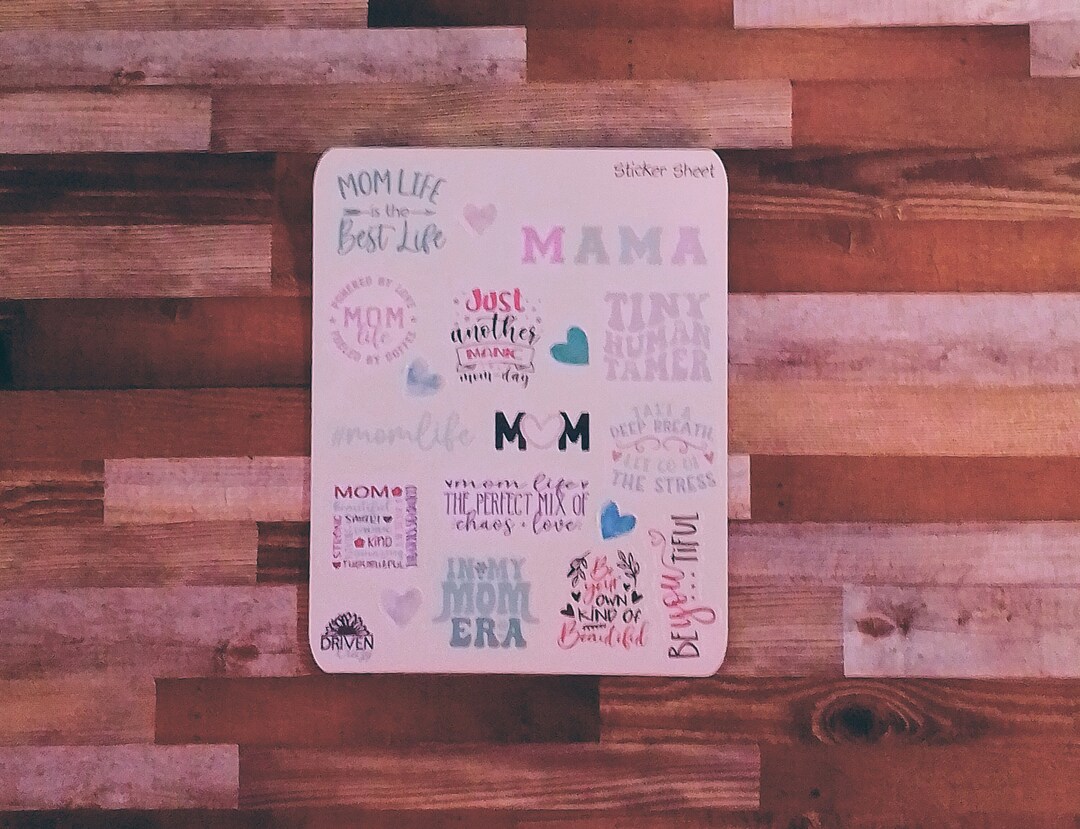 Sticker Sheet
MOM LIFE
is the
Best Life
MAMA
POWERED BY LOVE
MOM
life
FUELED BY COFFEE
Just
another
MANIC
mom-day
TINY
HUMAN
TAMER
#momlife
MOM
TAKE A
DEEP BREATH
LET GO OF
THE STRESS
MOM
Beautiful
SMART
STRONG
KIND
mom life
THE PERFECT MIX OF
chaos + love
IN MY
MOM
ERA
Be
your
OWN
KIND OF
Beautiful
BEyou...TIFUL
DRIVEN
Crazy